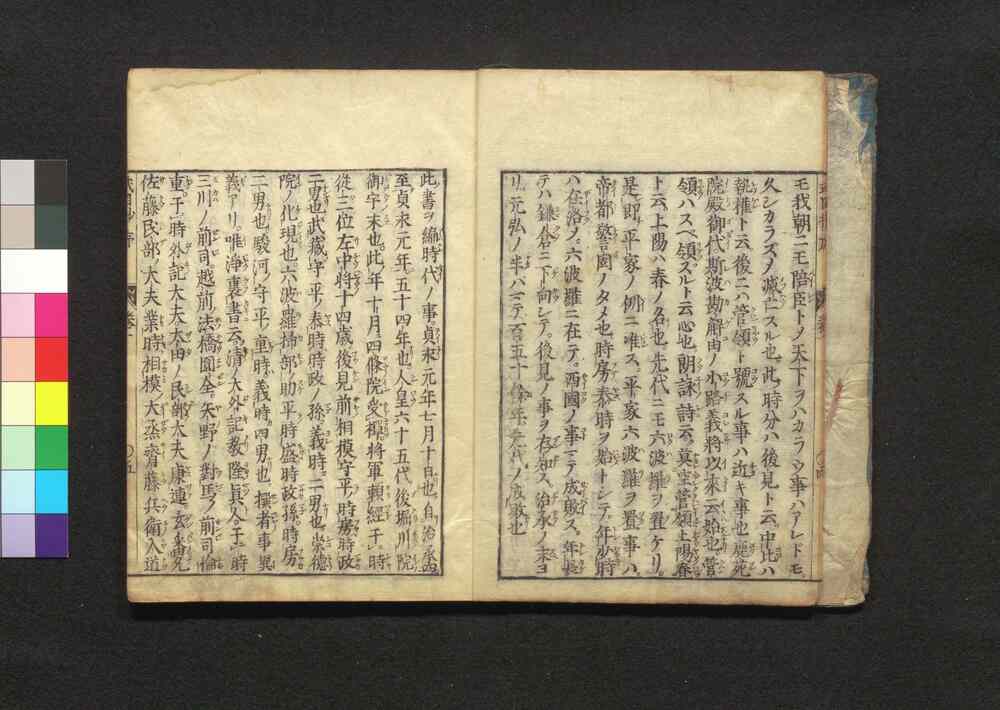 モ我朝ニモ陪臣トノ天下ヲハカラウ事ハアレドモ。
久シカラズノ滅亡スル也。此ノ時分ハ後見ト云。中比ハ
執權ト云。後ニハ管領ト號スル事ハ近キ事也。鹿苑
院殿御代斯波勘解由ノ小路義將以來云始也。管
領ハスベ領ズルト云心也。朗詠ノ詩云。莫空管領上陽春
ト云。上陽ハ春ノ名也。先代ニモ六波羅ヲ置ケリ。
是即平家ノ例ニ唯ス。平家六波羅ヲ置事ハ。
帝都警固ノタメ也。時房泰時ヲ始トシテ。年少時
ハ在洛ノ。六波羅ニ在テ。西國ノ事ニテ成敗ス。年長
テハ鎌倉ニ下向シテ。後見ノ事ヲ存知ス。治承ノ末ヨ
リ元弘ノ半バマテ百五十餘年先代ノ成敗也
此書ヲ編時代ノ事貞永元年七月十日也。自治承四
至貞永元年。五十四年也。人皇六十五代。後堀川院
御宇末也。此ノ年十月。四條院受禪將軍頼經于時
從三位左中將十四歳後見ノ前相模守平ノ時房時政
二男也。武藏守平ノ泰時時政ノ孫。義時一男也。崇德
院ノ化現也。六波羅掃部助平時盛時政孫。時房
二男也。駿河ノ守平ノ重時。義時四男也。撰者事異
義アリ。唯淨裏書云。清大外記教隆眞人。于時
三川ノ前司越前法橋圓全。矢野ノ對馬ノ前司倫
重。于時外記大夫太田ノ民部大夫康連玄番允
佐藤民部ノ大夫業時相模ノ大丞齊藤兵衛入道